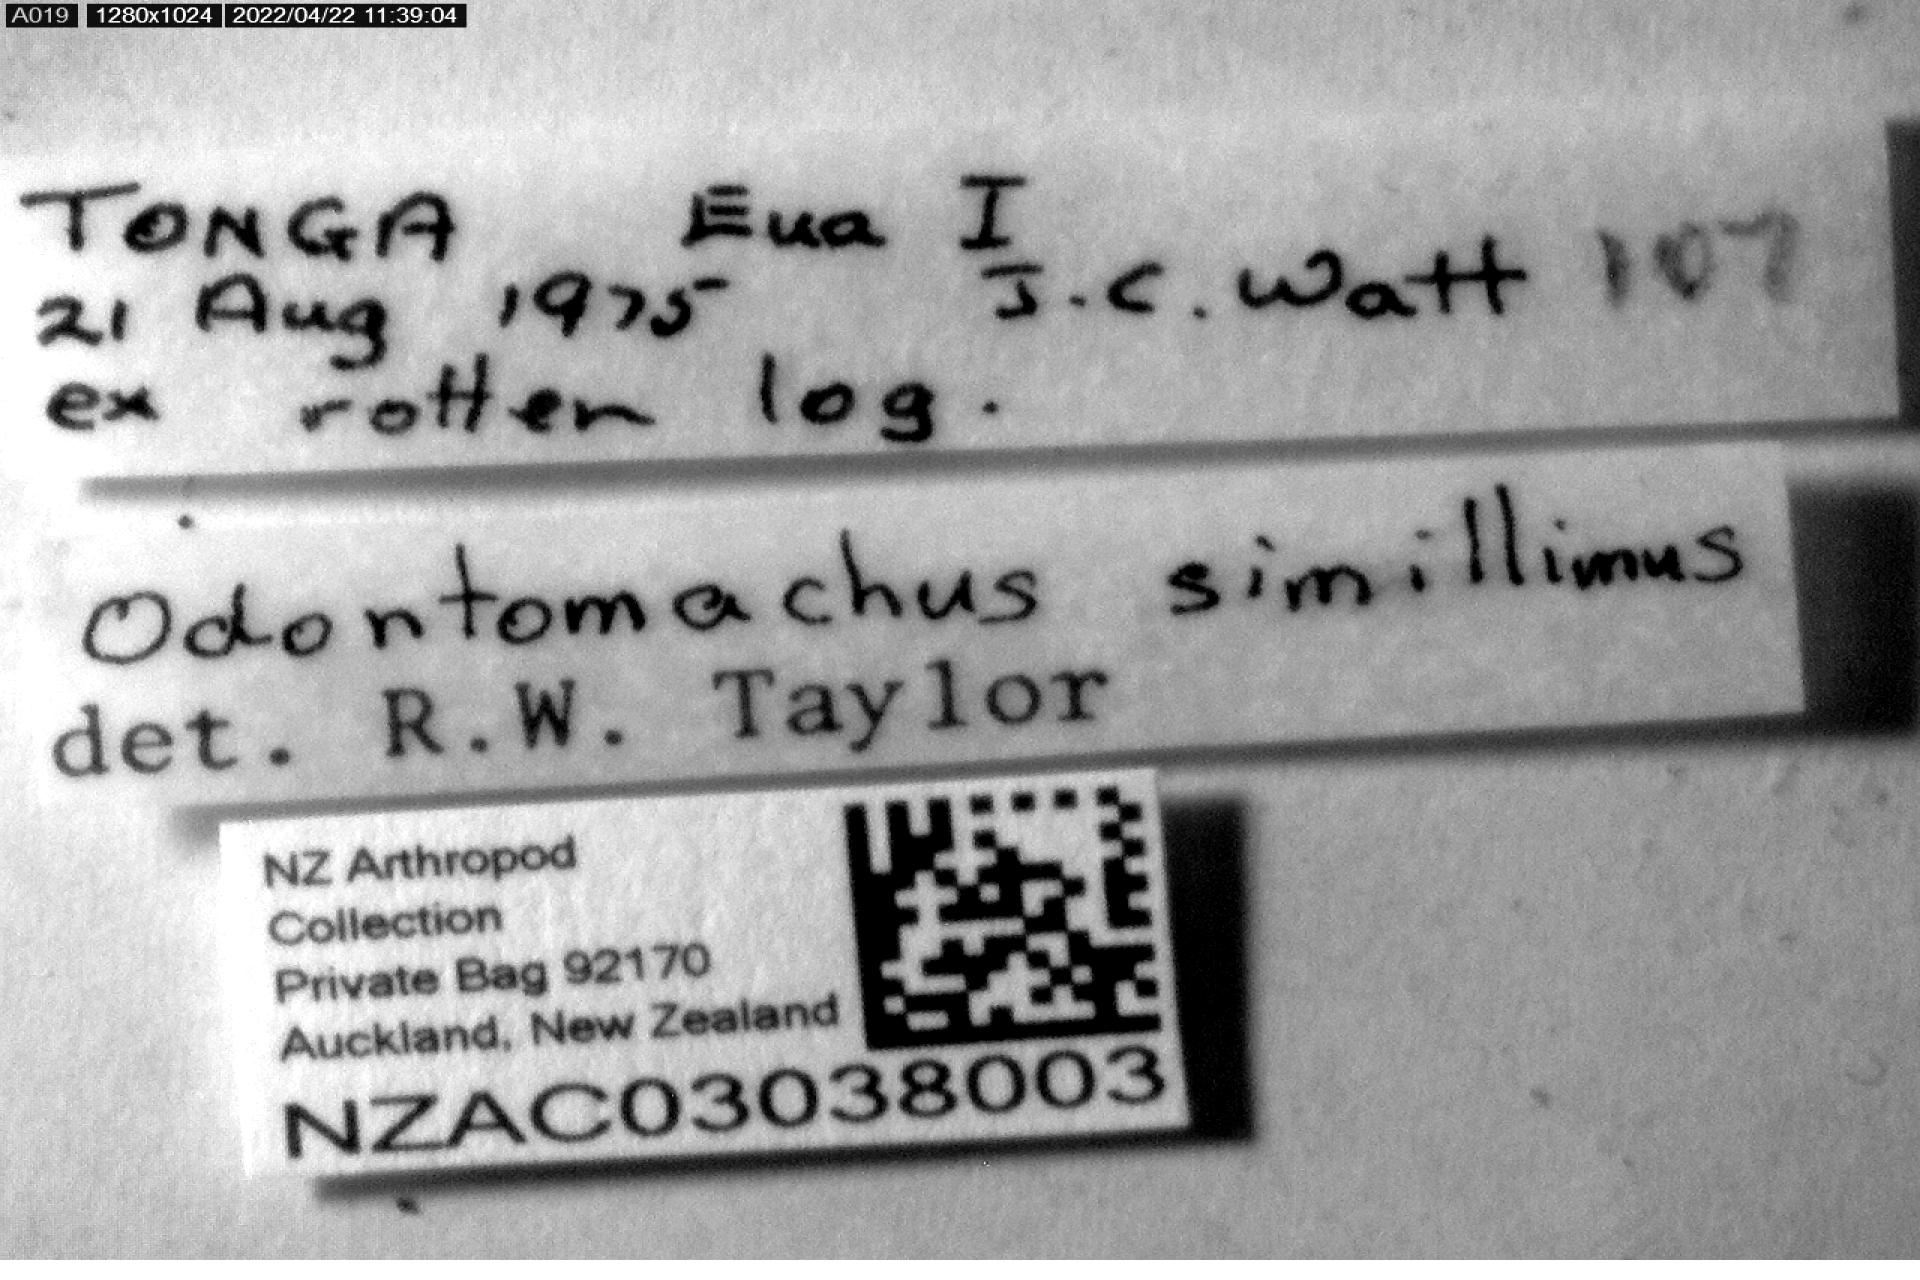 A019 1280x1024 2022/04/22 11:39:04
TONGA Eua I
21 Aug 1975 J.C. Watt 107
ex rotten log.
Odontomachus simillimus
det. R.W. Taylor
NZ Arthropod
Collection
Private Bag 92170
Auckland, New Zealand
NZAC03038003